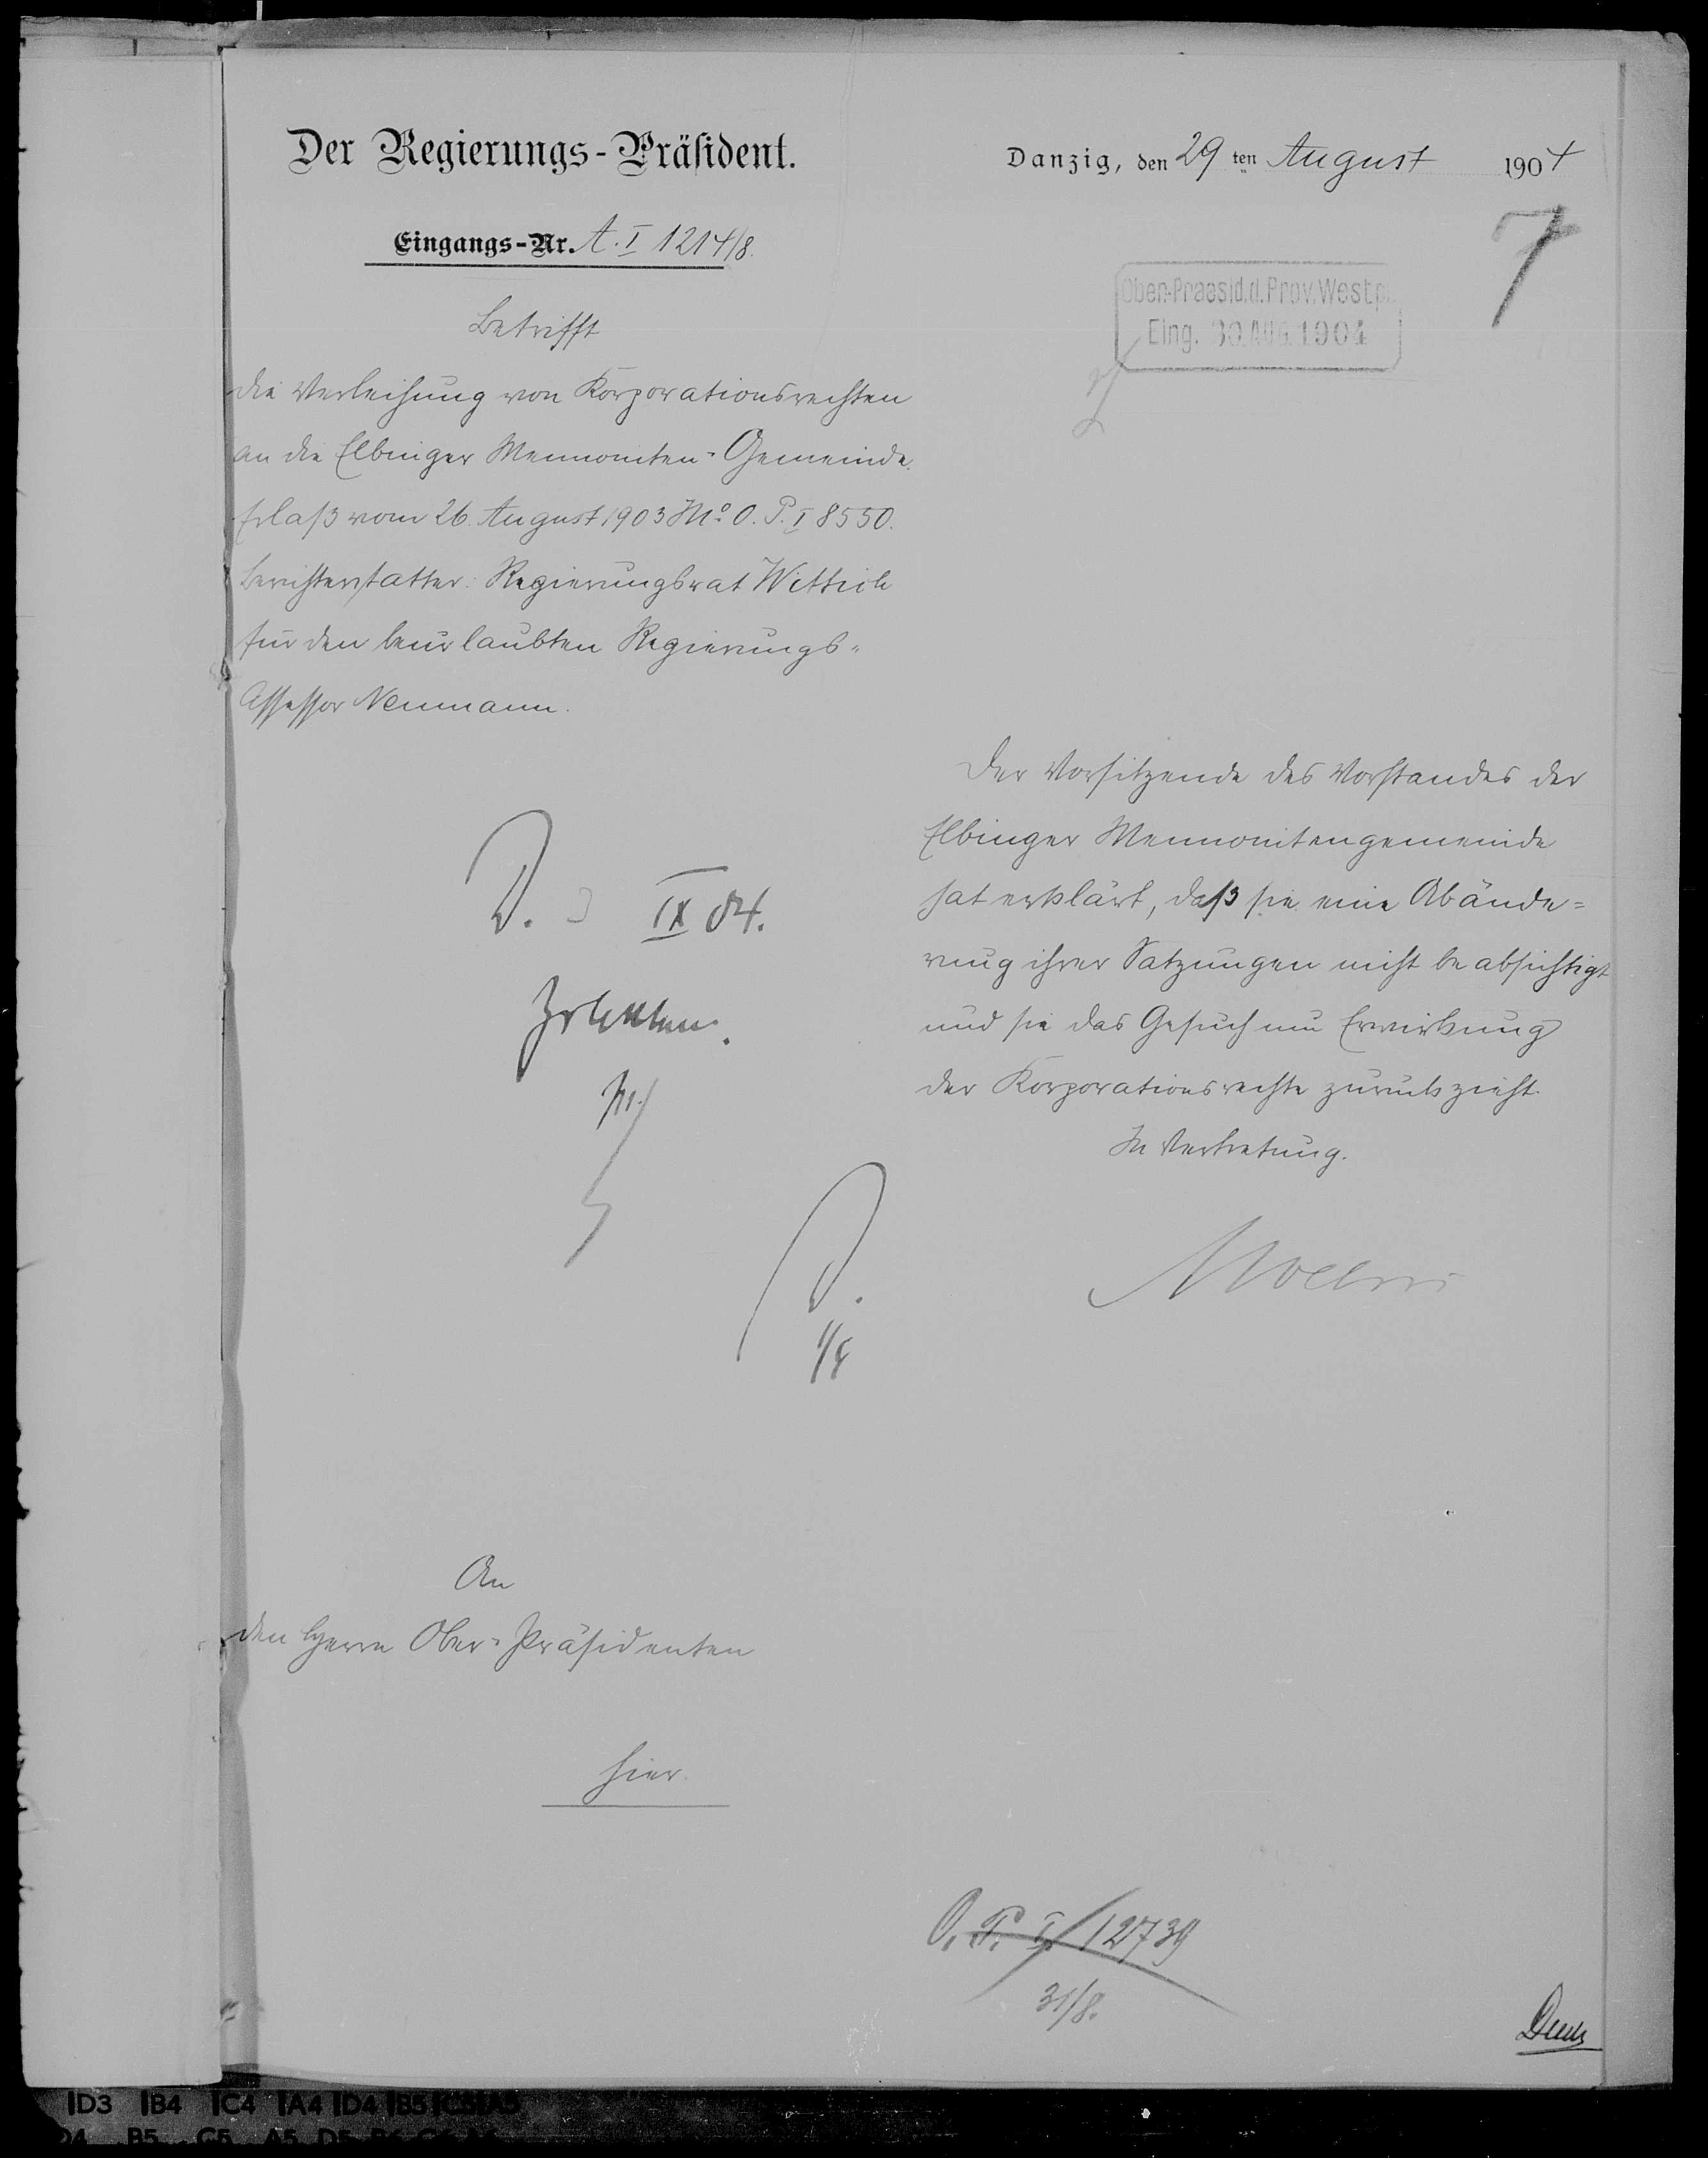 Der Regierungs-Präsident.
Danzig, den 29 ten August 1904
Eingangs-Nr. A. I 1214/8.
7
Ober-Praesid. d. Prov. Westpr.
Eing. 30. AUG. 1904
Betrifft
die Verleihung von Korporationsrechten
an die Elbinger Mennoniten-Gemeinde.
Erlaß vom 26. August 1903 No. O. P. I 8550.
Berichterstatter: Regierungsrat Wittich
für den beurlaubten Regierungs-
Assessor Neumann.
Der Vorsitzende des Vorstandes der
Elbinger Mennonitengemeinde
hat erklärt, daß sie eine Abände=
rung ihrer Satzungen nicht beabsichtigt
und sie das Gesuch um Erwirkung
der Korporationsrechte zurückzieht.
In Vertretung.
D. IX 04.
An
den Herrn Ober-Präsidenten
hier.
O. P. I 12739
31/8.